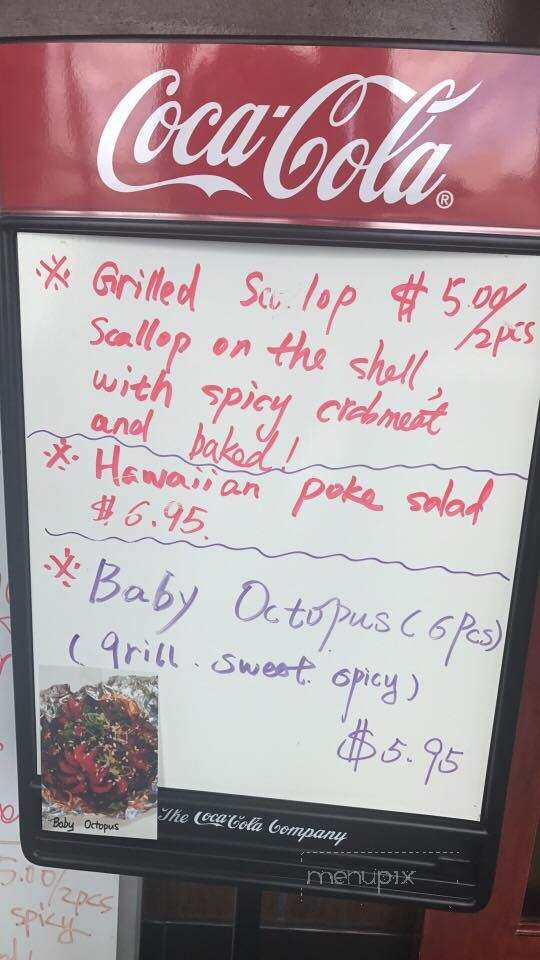 Coca-Cola®
※ Grilled Scallop $5.00/2pcs
Scallop on the shell,
with spicy crabmeat
and baked!
※ Hawaiian poke salad
$6.95.
※ Baby Octopus (6pcs)
(grill. sweet. spicy)
$5.95
Baby Octopus
The Coca-Cola Company
menupix
5.00/2pcs
spicy